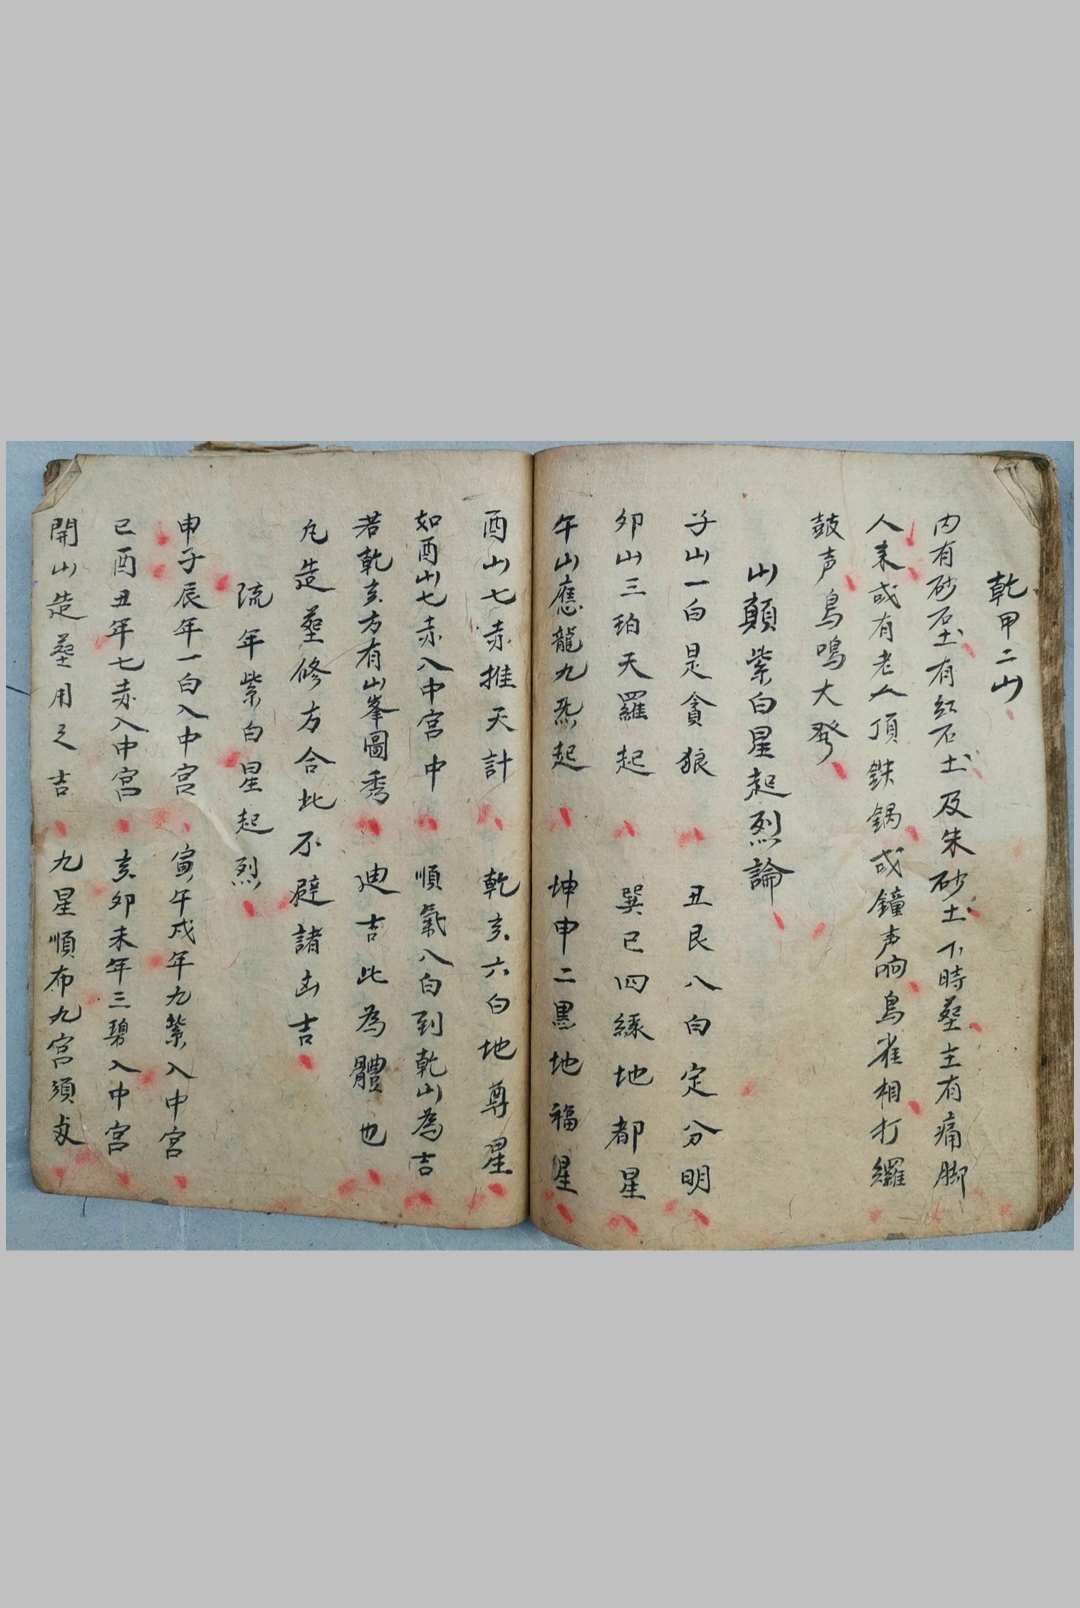 乾甲二山
内有砂石土有紅石土及朱砂土下時塟主有痛脚
人来或有老人頂鉄鍋或鐘声响鳥雀相打鑼
鼓声鳥鳴大發
山顛紫白星起烈論
子山一白是貪狼 丑艮八白定分明
卯山三珀天羅起 巽巳四緑地都星
午山應龍九炁起 坤申二黒地福星
酉山七赤推天計 乾亥六白地尊星
如酉山七赤入中宮中 順氣八白到乾山為吉
若乾亥方有山峯圖秀 迪吉此為體也
凢造塟修方合此不辟諸凶吉
流年紫白星起烈
申子辰年一白入中宮 寅午戌年九紫入中宮
巳酉丑年七赤入中宮 亥卯未年三碧入中宮
開山造塟用之吉 九星順布九宮須